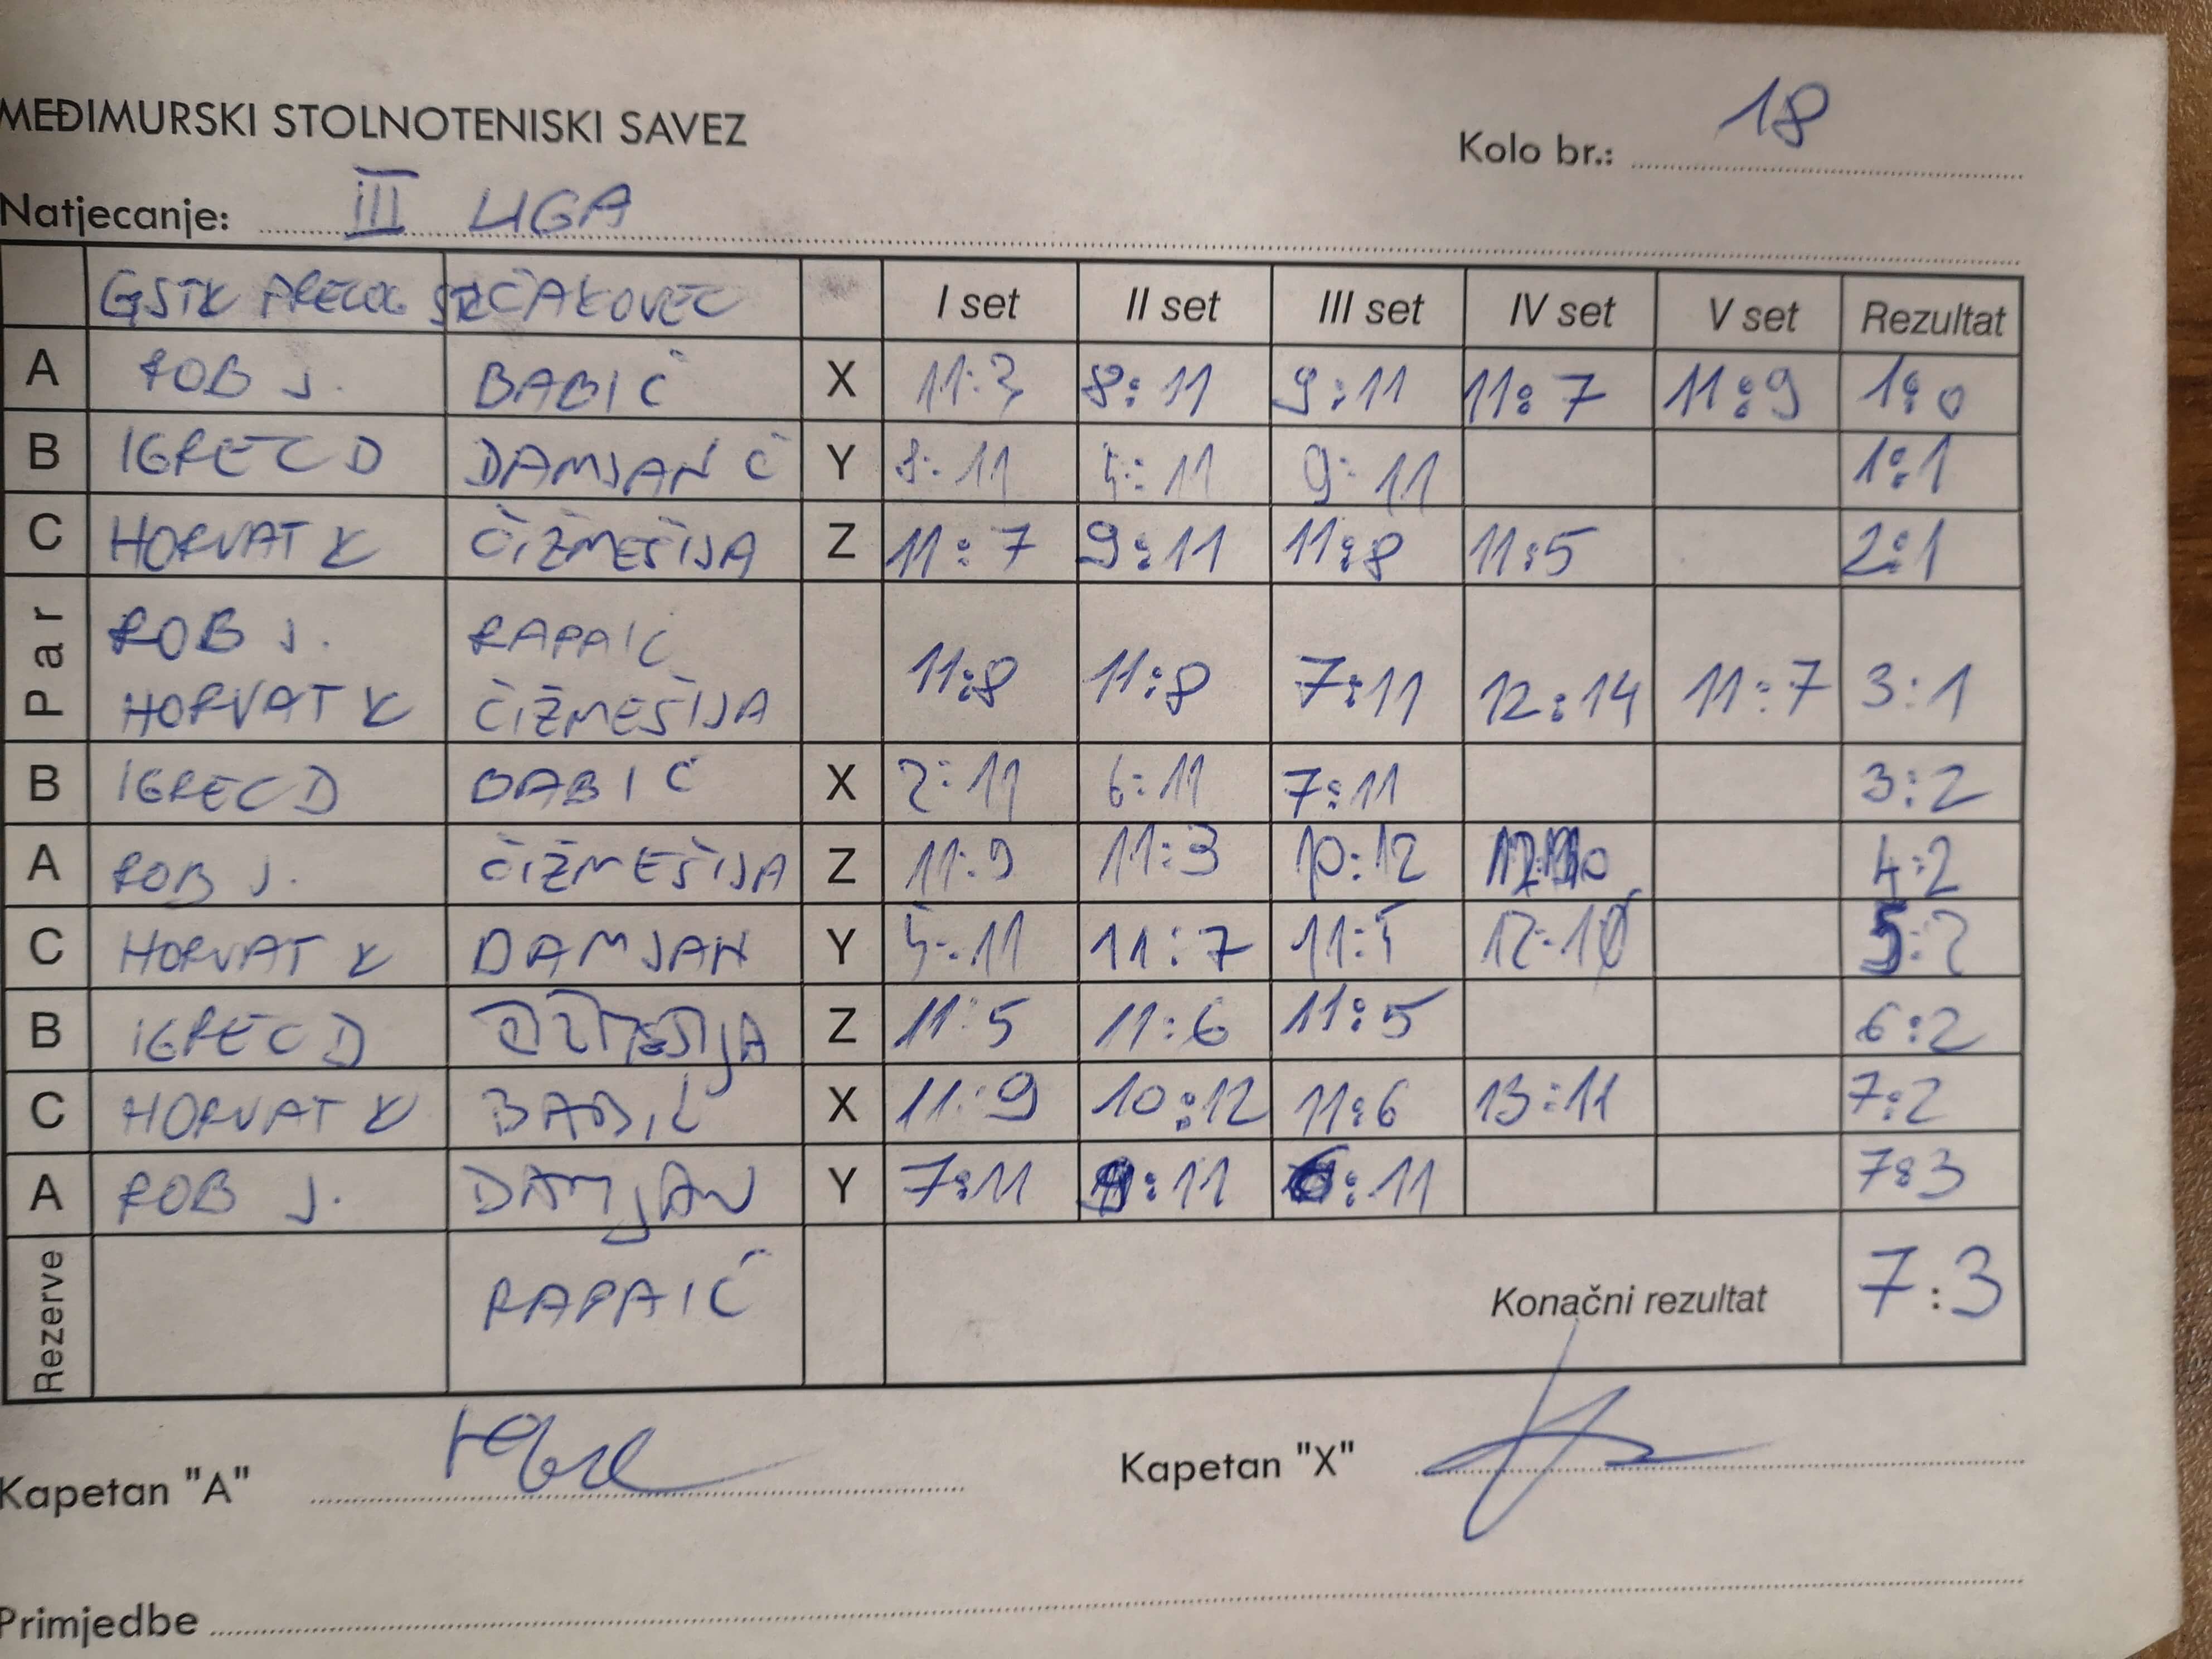 MEĐIMURSKI STOLNOTENISKI SAVEZ
Kolo br.: 18
Natjecanje: III LIGA
GSTK PRELOG STK ČAKOVEC I set II set III set IV set V set Rezultat
A ROB J. BABIĆ X 11:3 8:11 9:11 11:7 11:9 1:0
B IGREC D DAMJAN Č Y 8:11 5:11 9:11 1:1
C HORVAT K ČIŽMEŠIJA Z 11:7 9:11 11:8 11:5 2:1
Par ROB J. RAPAIĆ
HORVAT K ČIŽMEŠIJA 11:8 11:8 7:11 12:14 11:7 3:1
B IGREC D BABIĆ X 2:11 6:11 7:11 3:2
A ROB J. ČIŽMEŠIJA Z 11:9 11:3 10:12 4:2
C HORVAT K DAMJAN Y 5:11 11:7 11:5 12:10 5:2
B IGREC D ČIŽMEŠIJA Z 11:5 11:6 11:5 6:2
C HORVAT K BABIĆ X 11:9 10:12 11:6 13:11 7:2
A ROB J. DAMJAN Y 7:11 9:11 6:11 7:3
Rezerve RAPAIĆ Konačni rezultat 7:3
Kapetan "A" Kapetan "X"
Primjedbe